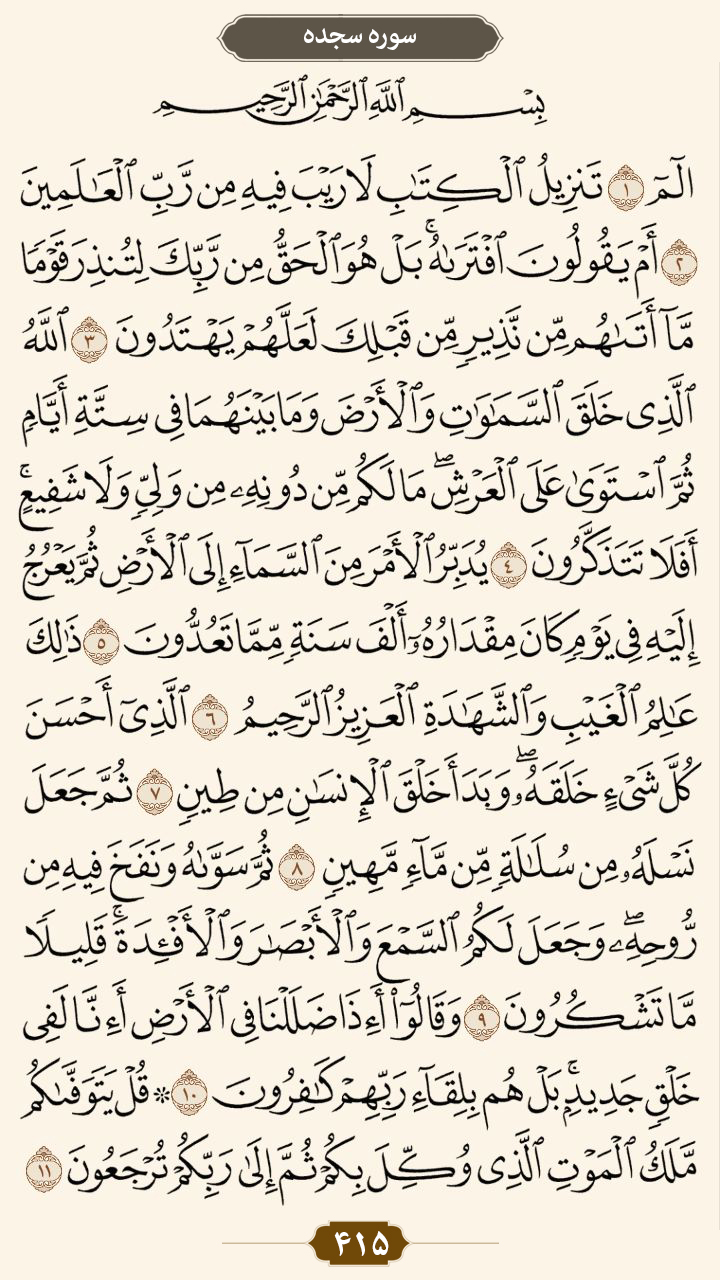 سوره سجده
بِسْمِ ٱللَّهِ ٱلرَّحْمَٰنِ ٱلرَّحِيمِ
الٓمٓ ١ تَنزِيلُ ٱلْكِتَٰبِ لَا رَيْبَ فِيهِ مِن رَّبِّ ٱلْعَٰلَمِينَ
٢ أَمْ يَقُولُونَ ٱفْتَرَىٰهُ ۚ بَلْ هُوَ ٱلْحَقُّ مِن رَّبِّكَ لِتُنذِرَ قَوْمًا
مَّآ أَتَىٰهُم مِّن نَّذِيرٍ مِّن قَبْلِكَ لَعَلَّهُمْ يَهْتَدُونَ ٣ ٱللَّهُ
ٱلَّذِى خَلَقَ ٱلسَّمَٰوَٰتِ وَٱلْأَرْضَ وَمَا بَيْنَهُمَا فِى سِتَّةِ أَيَّامٍ
ثُمَّ ٱسْتَوَىٰ عَلَى ٱلْعَرْشِ ۖ مَا لَكُم مِّن دُونِهِۦ مِن وَلِىٍّ وَلَا شَفِيعٍ ۚ
أَفَلَا تَتَذَكَّرُونَ ٤ يُدَبِّرُ ٱلْأَمْرَ مِنَ ٱلسَّمَآءِ إِلَى ٱلْأَرْضِ ثُمَّ يَعْرُجُ
إِلَيْهِ فِى يَوْمٍ كَانَ مِقْدَارُهُۥٓ أَلْفَ سَنَةٍ مِّمَّا تَعُدُّونَ ٥ ذَٰلِكَ
عَٰلِمُ ٱلْغَيْبِ وَٱلشَّهَٰدَةِ ٱلْعَزِيزُ ٱلرَّحِيمُ ٦ ٱلَّذِىٓ أَحْسَنَ
كُلَّ شَىْءٍ خَلَقَهُۥ ۖ وَبَدَأَ خَلْقَ ٱلْإِنسَٰنِ مِن طِينٍ ٧ ثُمَّ جَعَلَ
نَسْلَهُۥ مِن سُلَٰلَةٍ مِّن مَّآءٍ مَّهِينٍ ٨ ثُمَّ سَوَّىٰهُ وَنَفَخَ فِيهِ مِن
رُّوحِهِۦ ۖ وَجَعَلَ لَكُمُ ٱلسَّمْعَ وَٱلْأَبْصَٰرَ وَٱلْأَفْـِٔدَةَ ۚ قَلِيلًا
مَّا تَشْكُرُونَ ٩ وَقَالُوٓا۟ أَءِذَا ضَلَلْنَا فِى ٱلْأَرْضِ أَءِنَّا لَفِى
خَلْقٍ جَدِيدٍۭ ۚ بَلْ هُم بِلِقَآءِ رَبِّهِمْ كَٰفِرُونَ ١٠ ۞ قُلْ يَتَوَفَّىٰكُم
مَّلَكُ ٱلْمَوْتِ ٱلَّذِى وُكِّلَ بِكُمْ ثُمَّ إِلَىٰ رَبِّكُمْ تُرْجَعُونَ ١١
۴۱۵